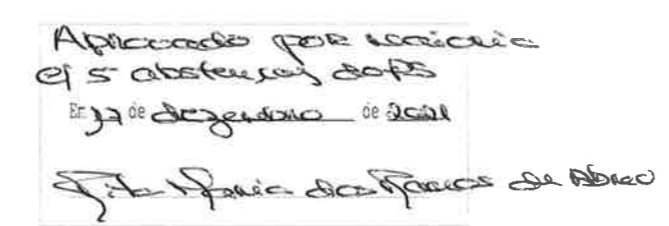 Aprovado por maioria
c/ 5 abstenções do PS
Em 17 de dezembro de 2021
Rita Maria dos Ramos de Abreu